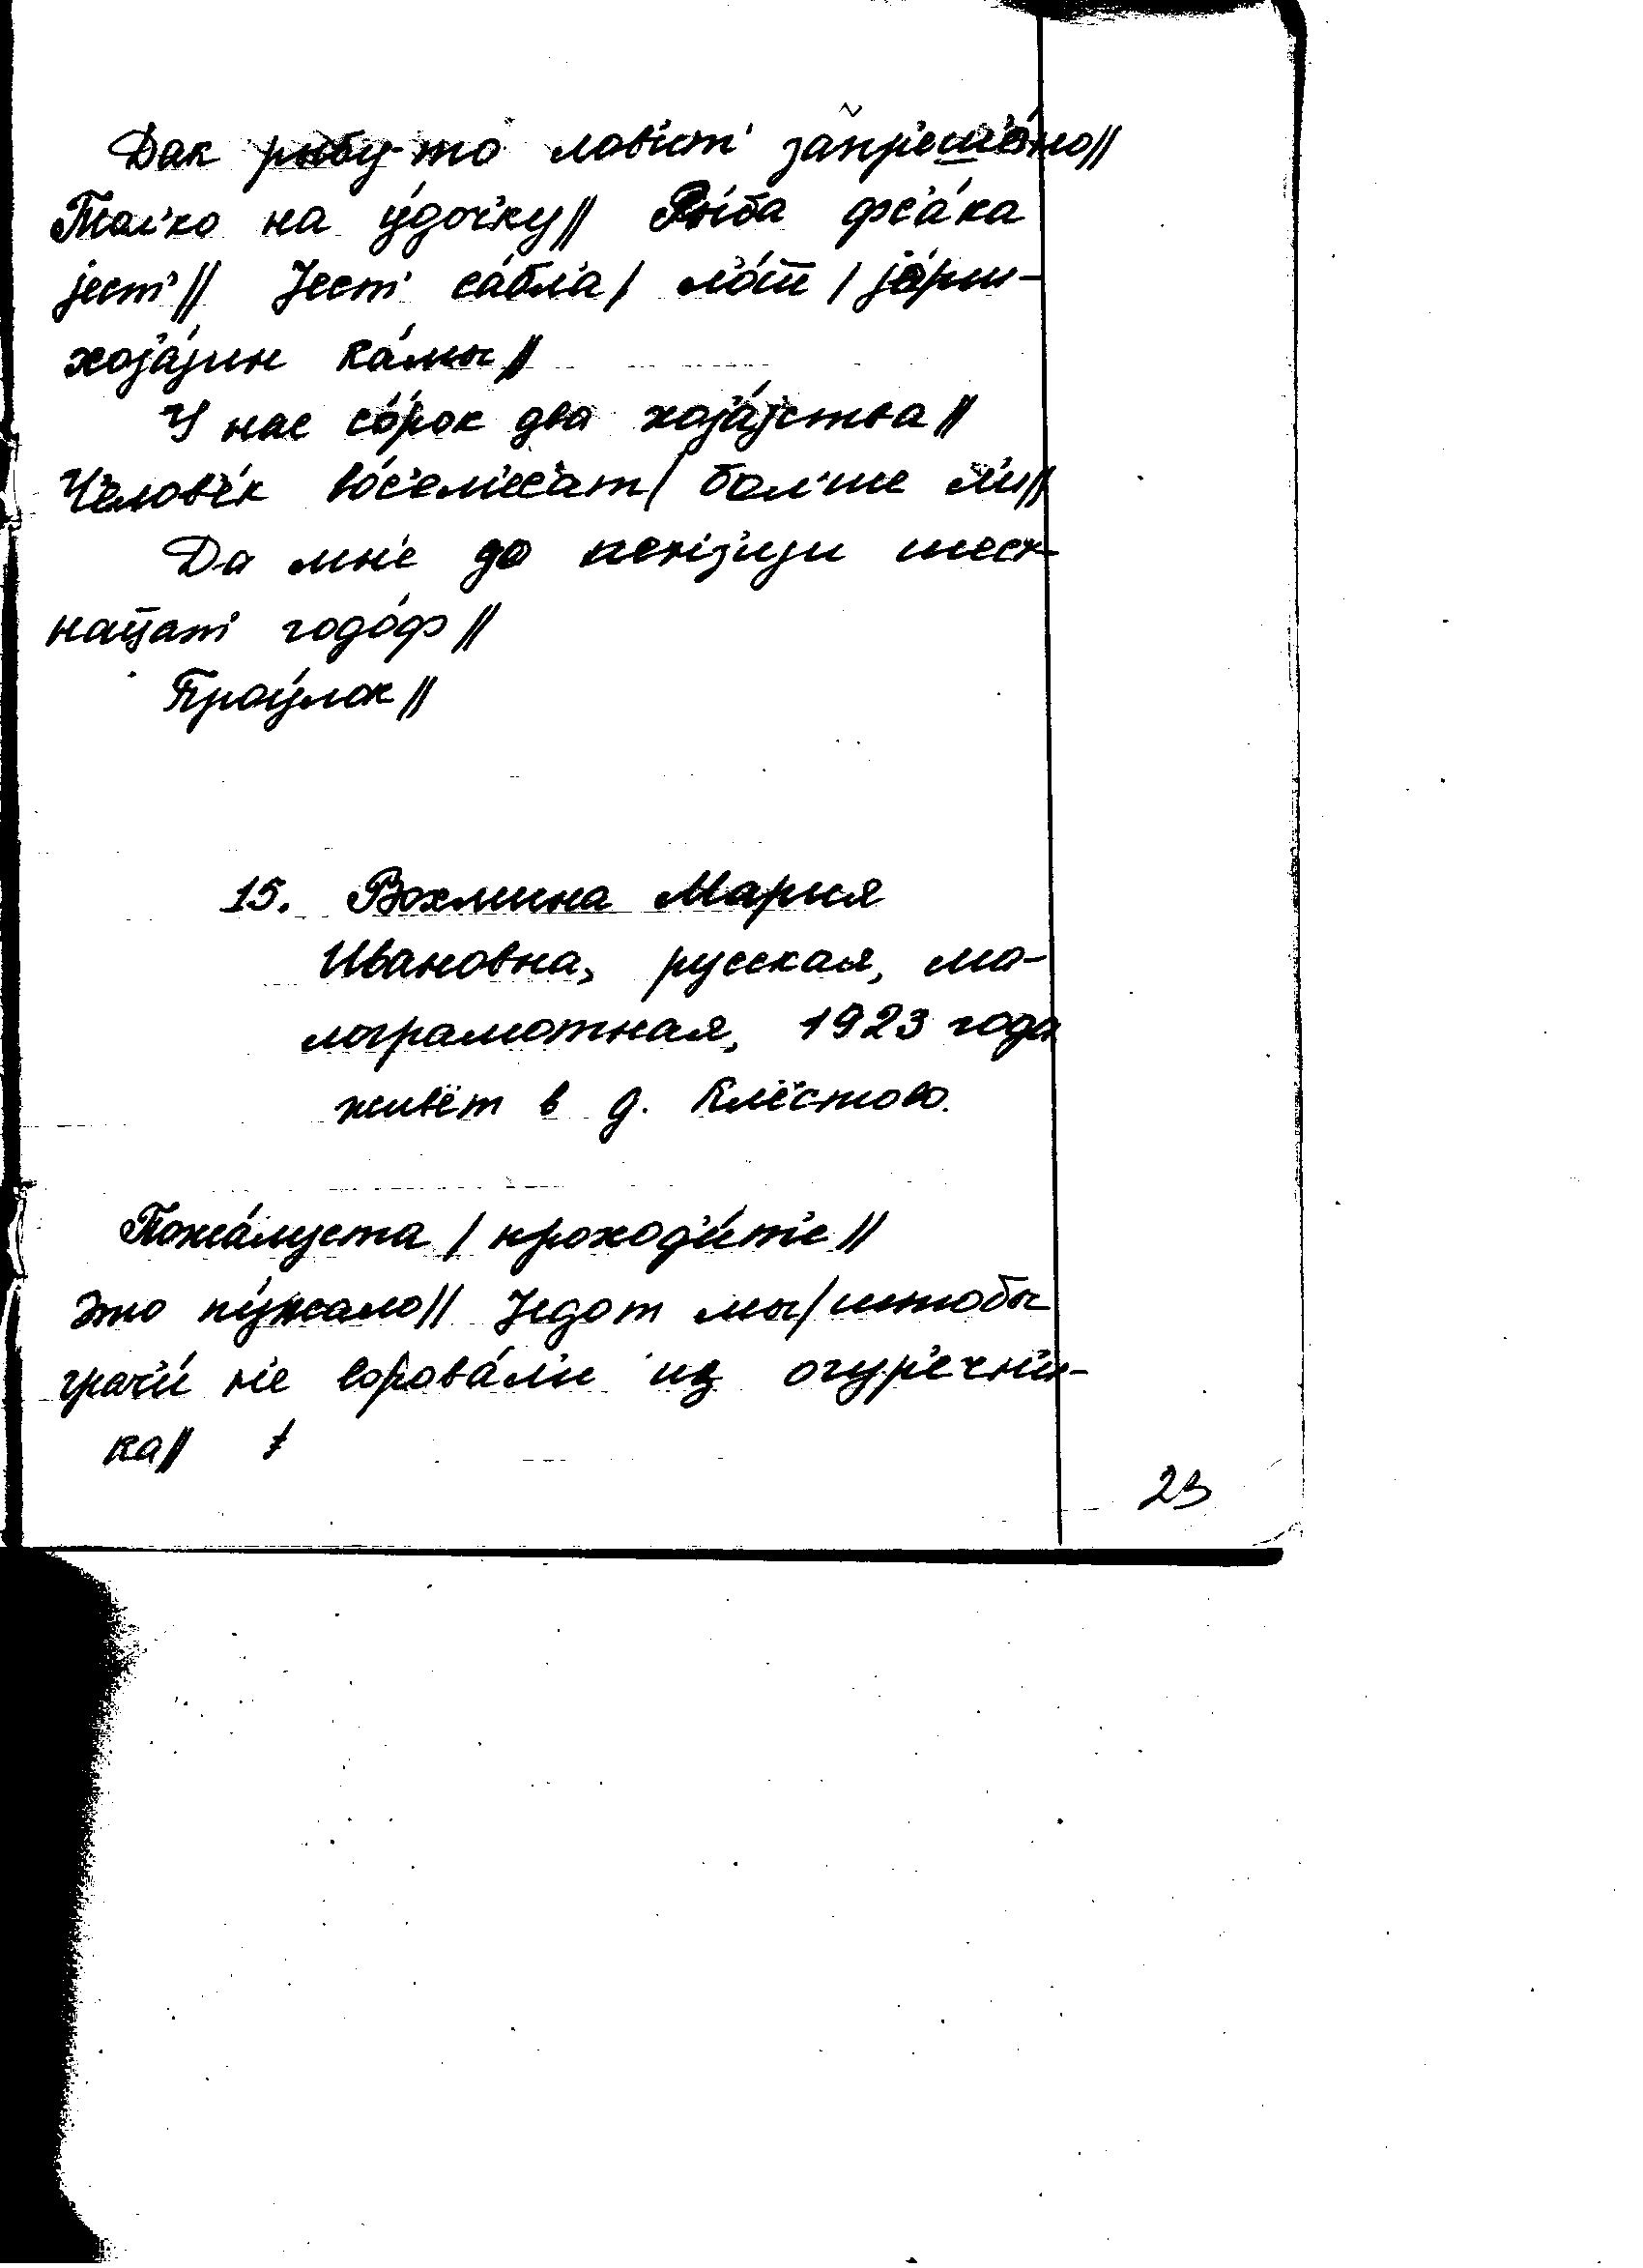 Дак рыбу-то лов'ит' запр'еш'о́но//
Тол'ко на у́доч'ку// Ры́ба фс'а́ка
јест'// Јест' са́бл'а/ л'о́ш'/ јо́рш-
хоз'а́јин ка́мы//
У нас со́рок два хоз'а́јства//
Ч'елов'е́к во́с'ем'с'ат/ бол'ше л'и//
Да мн'е до пен'з'ији шесн-
нацат' годо́ф//
Проу́лок//
15. Вохмина Мария
Ивановна, русская, ма-
лограмотная, 1923 года
живёт в д. Клёстово.
Пожа́луста/ проход'и́т'е//
Это пу́жало// Једот мы/ штобы
грач'и́ н'е ворова́л'и из огур'ечн'и-
ка//
23